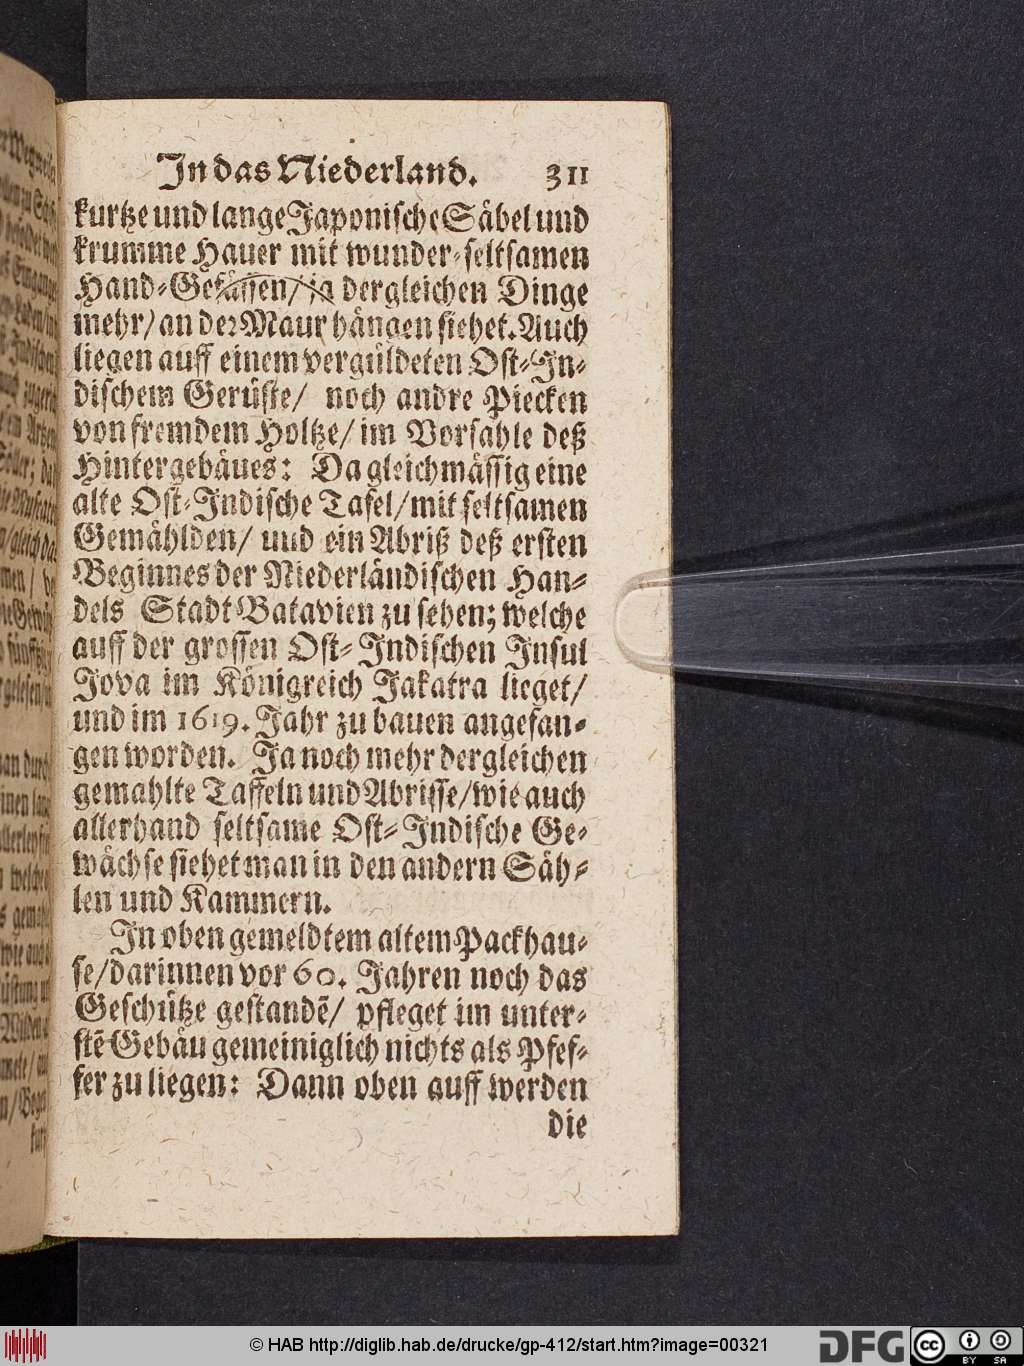 In das Niederland. 311
kurtze und lange Japonische Säbel und
krumme Hauer mit wunder-seltsamen
Hand-Gefässen/ ja dergleichen Dinge
mehr/ an der Maur hängen siehet. Auch
liegen auff einem vergüldeten Ost-In-
dischem Gerüste/ noch andre Piecken
von fremdem Holtze/ im Vorsahle deß
Hintergebäues: Da gleichmässig eine
alte Ost-Indische Tafel/ mit seltsamen
Gemählden/ und ein Abriß deß ersten
Beginnes der Niederländischen Han-
dels Stadt Batavien zu sehen; welche
auff der grossen Ost-Indischen Insul
Jova im Königreich Jakatra lieget/
und im 1619. Jahr zu bauen angefan-
gen worden. Ja noch mehr dergleichen
gemahlte Taffeln und Abrisse/ wie auch
allerhand seltsame Ost-Indische Ge-
wächse siehet man in den andern Säh-
len und Kammern.
In oben gemeldtem altem Packhau-
se/ darinnen vor 60. Jahren noch das
Geschütze gestandẽ/ pfleget im unter-
stẽ Gebäu gemeiniglich nichts als Pfef-
fer zu liegen: Dann oben auff werden
die
© HAB http://diglib.hab.de/drucke/gp-412/start.htm?image=00321
DFG
cc BY SA